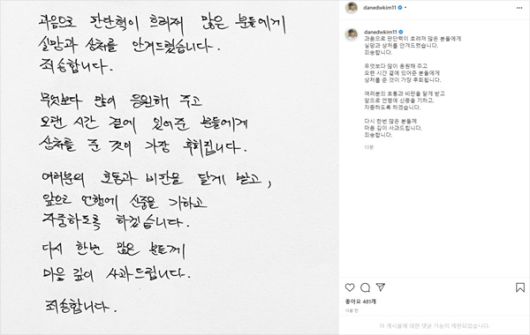 과음으로 판단력이 흐려져 많은 분들에게
실망과 상처를 안겨드렸습니다.
죄송합니다.
무엇보다 많이 응원해 주고
오랜 시간 곁에 있어준 분들에게
상처를 준 것이 가장 후회됩니다.
여러분의 호통과 비판을 달게 받고,
앞으로 언행에 신중을 기하고
자중하도록 하겠습니다.
다시 한번 많은 분들께
마음 깊이 사과드립니다.
죄송합니다.
danedwkim11
danedwkim11
과음으로 판단력이 흐려져 많은 분들에게
실망과 상처를 안겨드렸습니다.
죄송합니다.
무엇보다 많이 응원해 주고
오랜 시간 곁에 있어준 분들에게
상처를 준 것이 가장 후회됩니다.
여러분의 호통과 비판을 달게 받고
앞으로 언행에 신중을 기하고,
자중하도록 하겠습니다.
다시 한번 많은 분들께
마음 깊이 사과드립니다.
죄송합니다.
좋아요 481개
이 게시물에 대한 댓글 기능이 제한되었습니다.